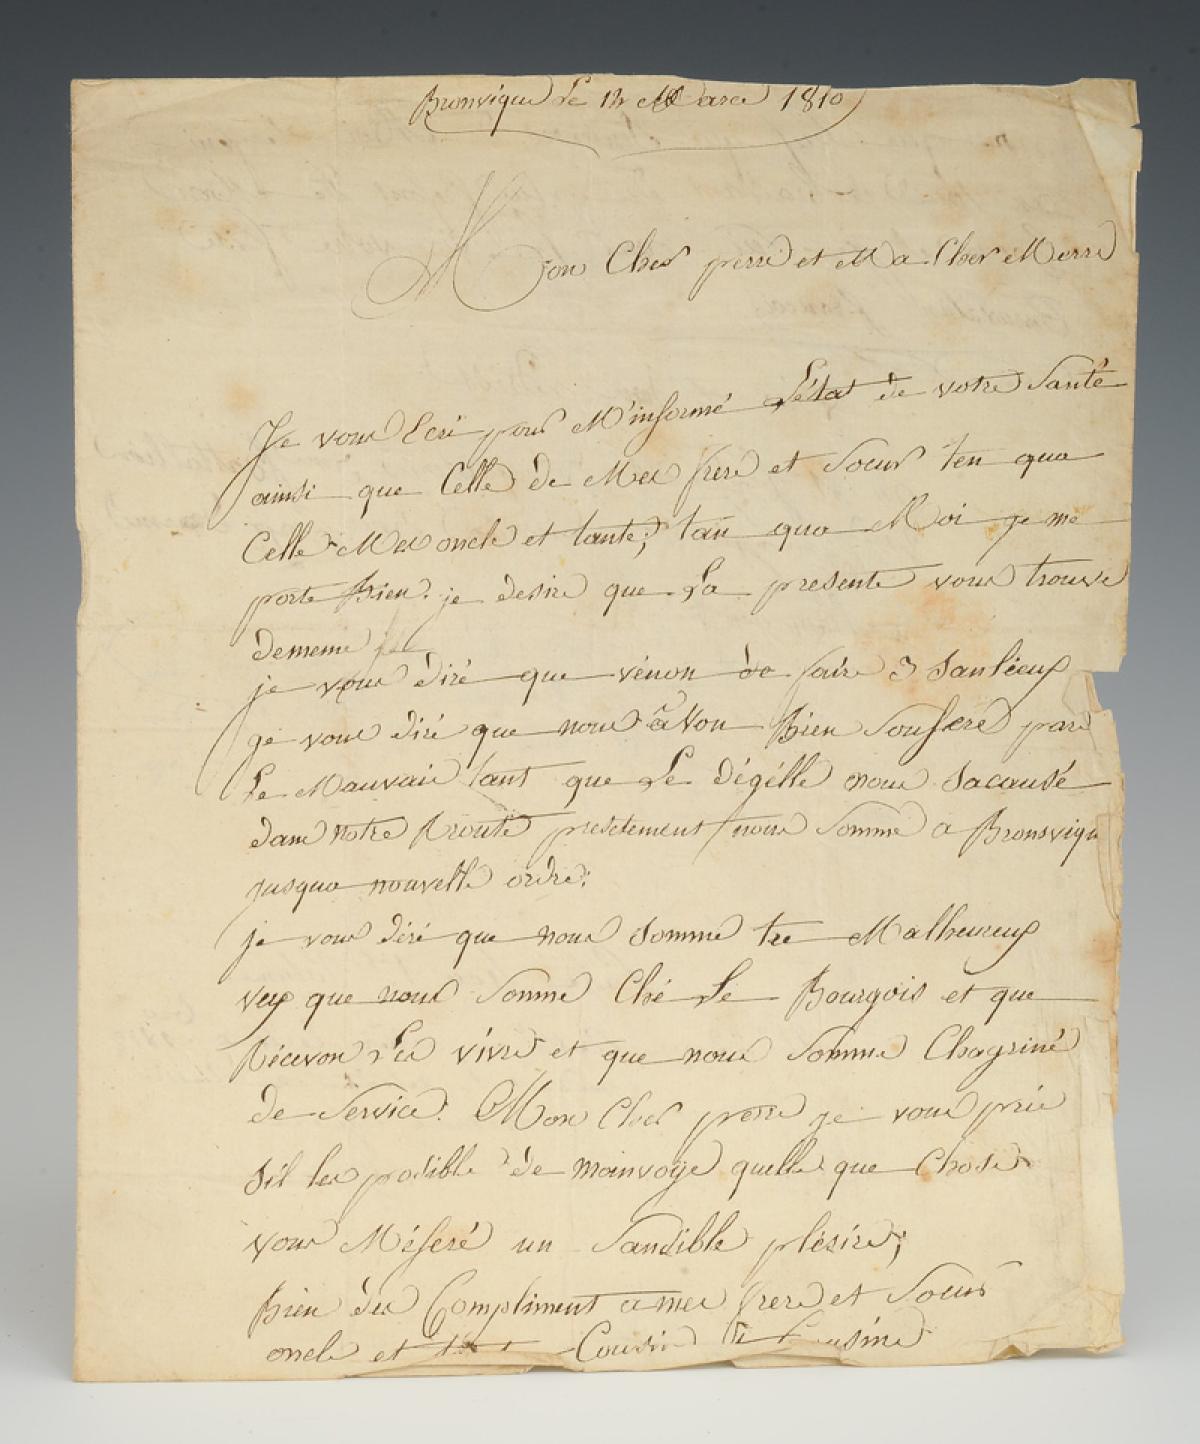 Bronvique Le 12 Mars 1810
Mon Cher perre et Ma Cher Merre
Je vous Ecri pour M'informé L'état de votre Santé
ainsi que Celle de Mes frere et Soeur ten qua
Celle Mes oncle et tante; tan qua Moi je me
porte Bien. je desire que La presente vous trouve
dememe
je vous diré que vénon de faire 3 Sanlieux
ge vous diré que nous avon Bien Soufere par
Le Mauvais tant que Le dégélle nous Sacausé
dans notre Route presetement nous Somme a Bronsviqu
jusqua nouvelle ordre;
je vous diré que nous Somme tre Malheureux
veux que nous Somme Ché Le Bourgois et que
Récevon Les vivre et que nous Somme Chagriné
de Service. Mon Cher perre je vous prie
Sil les posible de mainvoye quelle que Chose
vous Méferé un Sansible plésire;
Bien des Compliment a mes frere et Soeur
oncle et Cousin